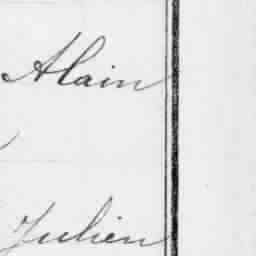 Alain
Julien